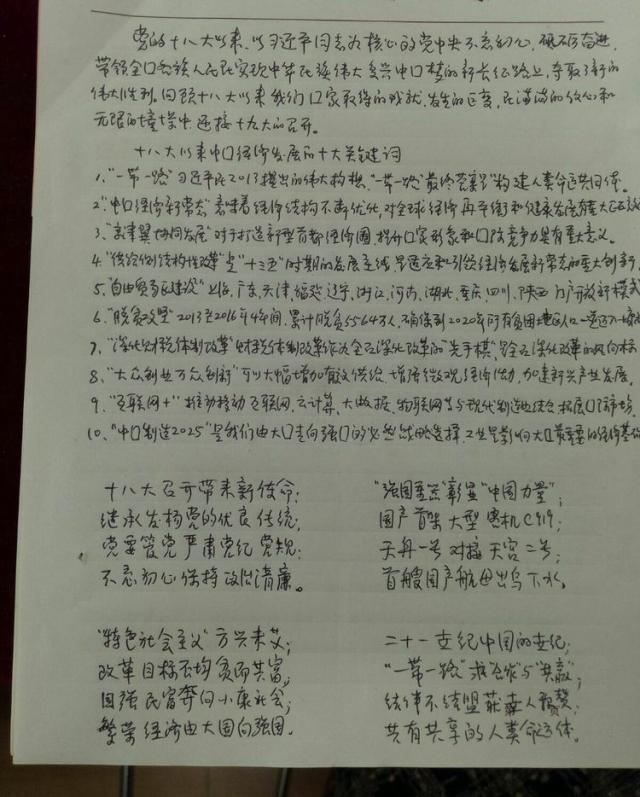 党的十八大以来，以习近平同志为核心的党中央不忘初心，砥砺奋进，
带领全国各族人民在实现中华民族伟大复兴中国梦的新长征路上，夺取了新的
伟大胜利。回顾十八大以来我们国家取得的成就，发生的巨变，在满满的信心和
无限的憧憬中，迎接十九大的召开。
十八大以来中国经济发展的十大关键词
1、"一带一路"习近平在2013提出的伟大构想，"一带一路"最终愿景是构建人类命运共同体。
2、"中国经济新常态"意味着经济结构不断优化，对全球经济再平衡和健康发展有重大正效
3、"京津冀协同发展"对于打造新型首都经济圈，提升国家形象和国际竞争力具有重大意义。
4、"供给侧结构性改革"是"十三五"时期的发展主线，是适应和引领经济发展新常态的重大创新，
5、"自由贸易区建设"上海，广东，天津，福建，辽宁，浙江，河南，湖北，重庆，四川，陕西，为开放新模式
6、"脱贫攻坚"2013至2016年4年间，累计脱贫5564万人，确保到2020年所有贫困地区人口一道迈入小康社
7、"深化财税体制改革"财税体制改革作为全面深化改革的"先手棋"，是全面深化改革的风向标
8、"大众创业万众创新"可以大幅增加有效供给，增强微观经济活力，加速新兴产业发展，
9、"互联网+"推动移动互联网，云计算，大数据，物联网等与现代制造业结合，拓展国际市场，
10、"中国制造2025"是我们由大国走向强国的必然战略选择，工业是影响大国最重要的经济基础
十八大召开带来新使命；
继承发扬党的优良传统，
党要管党严肃党纪党规；
不忘初心保持政治清廉。
"强国重器"彰显"中国力量"；
国产首架大型客机C919，
天舟一号对接天宫二号；
首艘国产航母出坞下水。
"特色社会主义"方兴未艾；
改革目标不均贫而共富，
国强民富奔向小康社会；
繁荣经济由大国向强国。
二十一世纪中国的世纪；
"一带一路"求合作与"共赢"，
结伴不结盟获来人预赞；
共有共享的人类命运体。